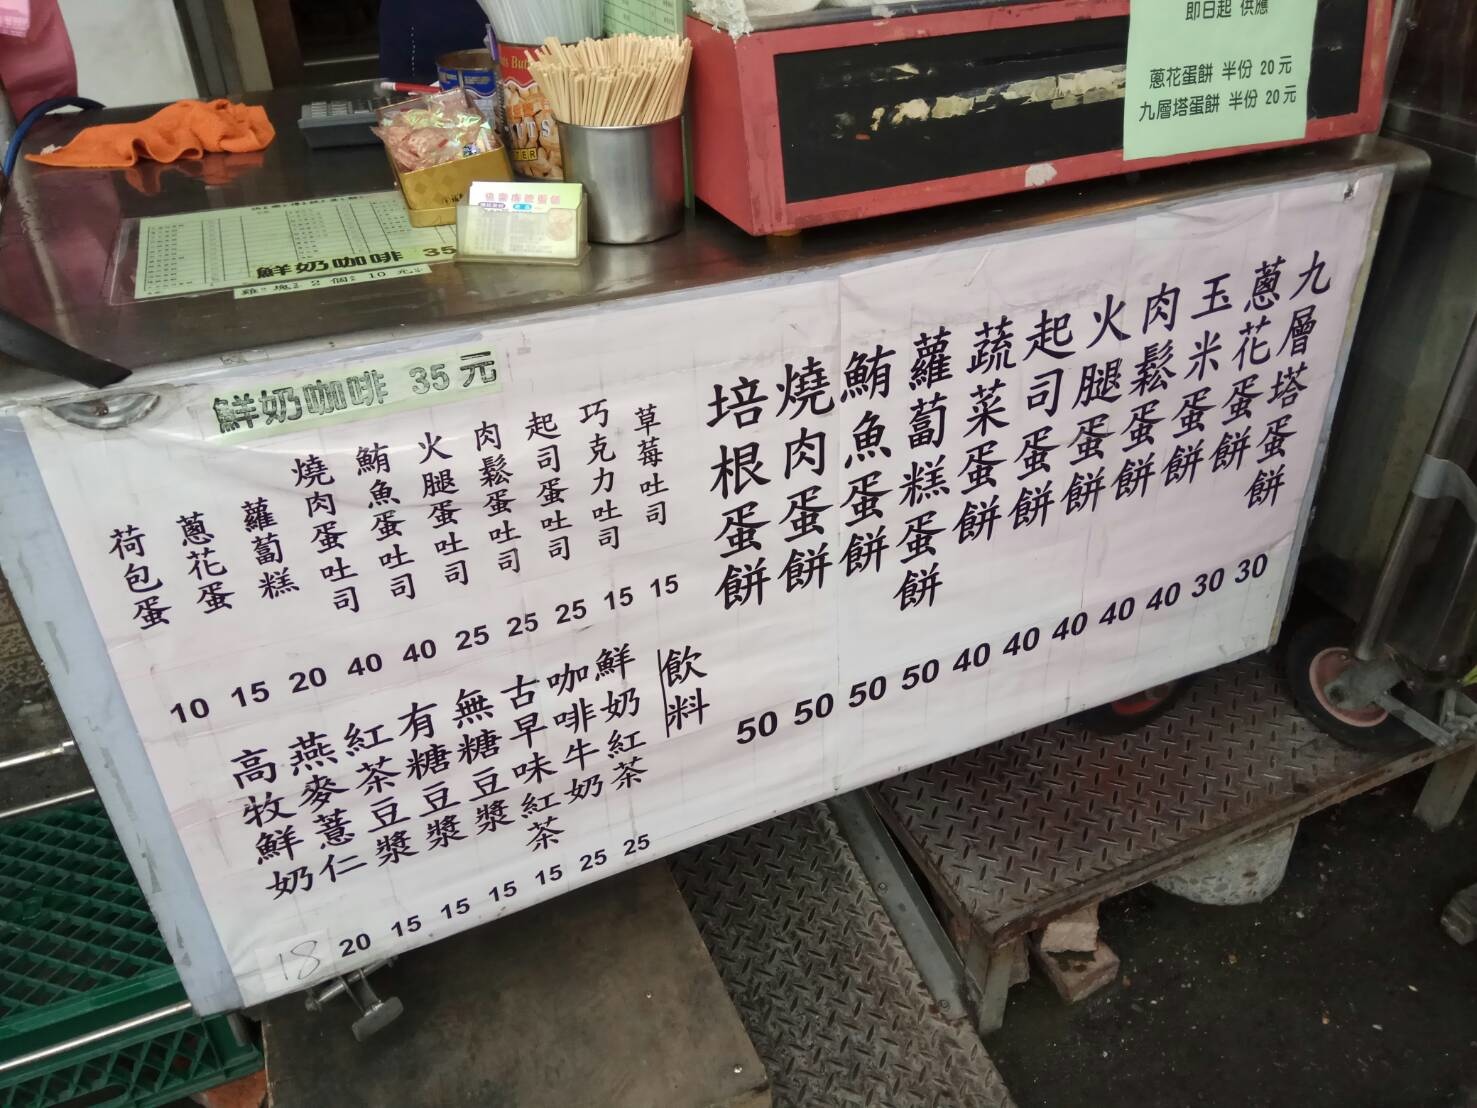 即日起 供應
蔥花蛋餅 半份 20元
九層塔蛋餅 半份 20元
鮮奶咖啡 35
雞塊 2個 10元
鮮奶咖啡 35元
九層塔蛋餅 30
蔥花蛋餅 30
玉米蛋餅 40
肉鬆蛋餅 40
火腿蛋餅 40
起司蛋餅 40
蔬菜蛋餅 40
蘿蔔糕蛋餅 50
鮪魚蛋餅 50
燒肉蛋餅 50
培根蛋餅 50
草莓吐司 15
巧克力吐司 15
起司蛋吐司 25
肉鬆蛋吐司 25
火腿蛋吐司 25
鮪魚蛋吐司 40
燒肉蛋吐司 40
蘿蔔糕 20
蔥花蛋 15
荷包蛋 10
飲料
鮮奶紅茶 25
咖啡牛奶 25
古早味紅茶 15
無糖豆漿 15
有糖豆漿 15
紅茶豆漿 15
燕麥薏仁 20
高牧鮮奶 18